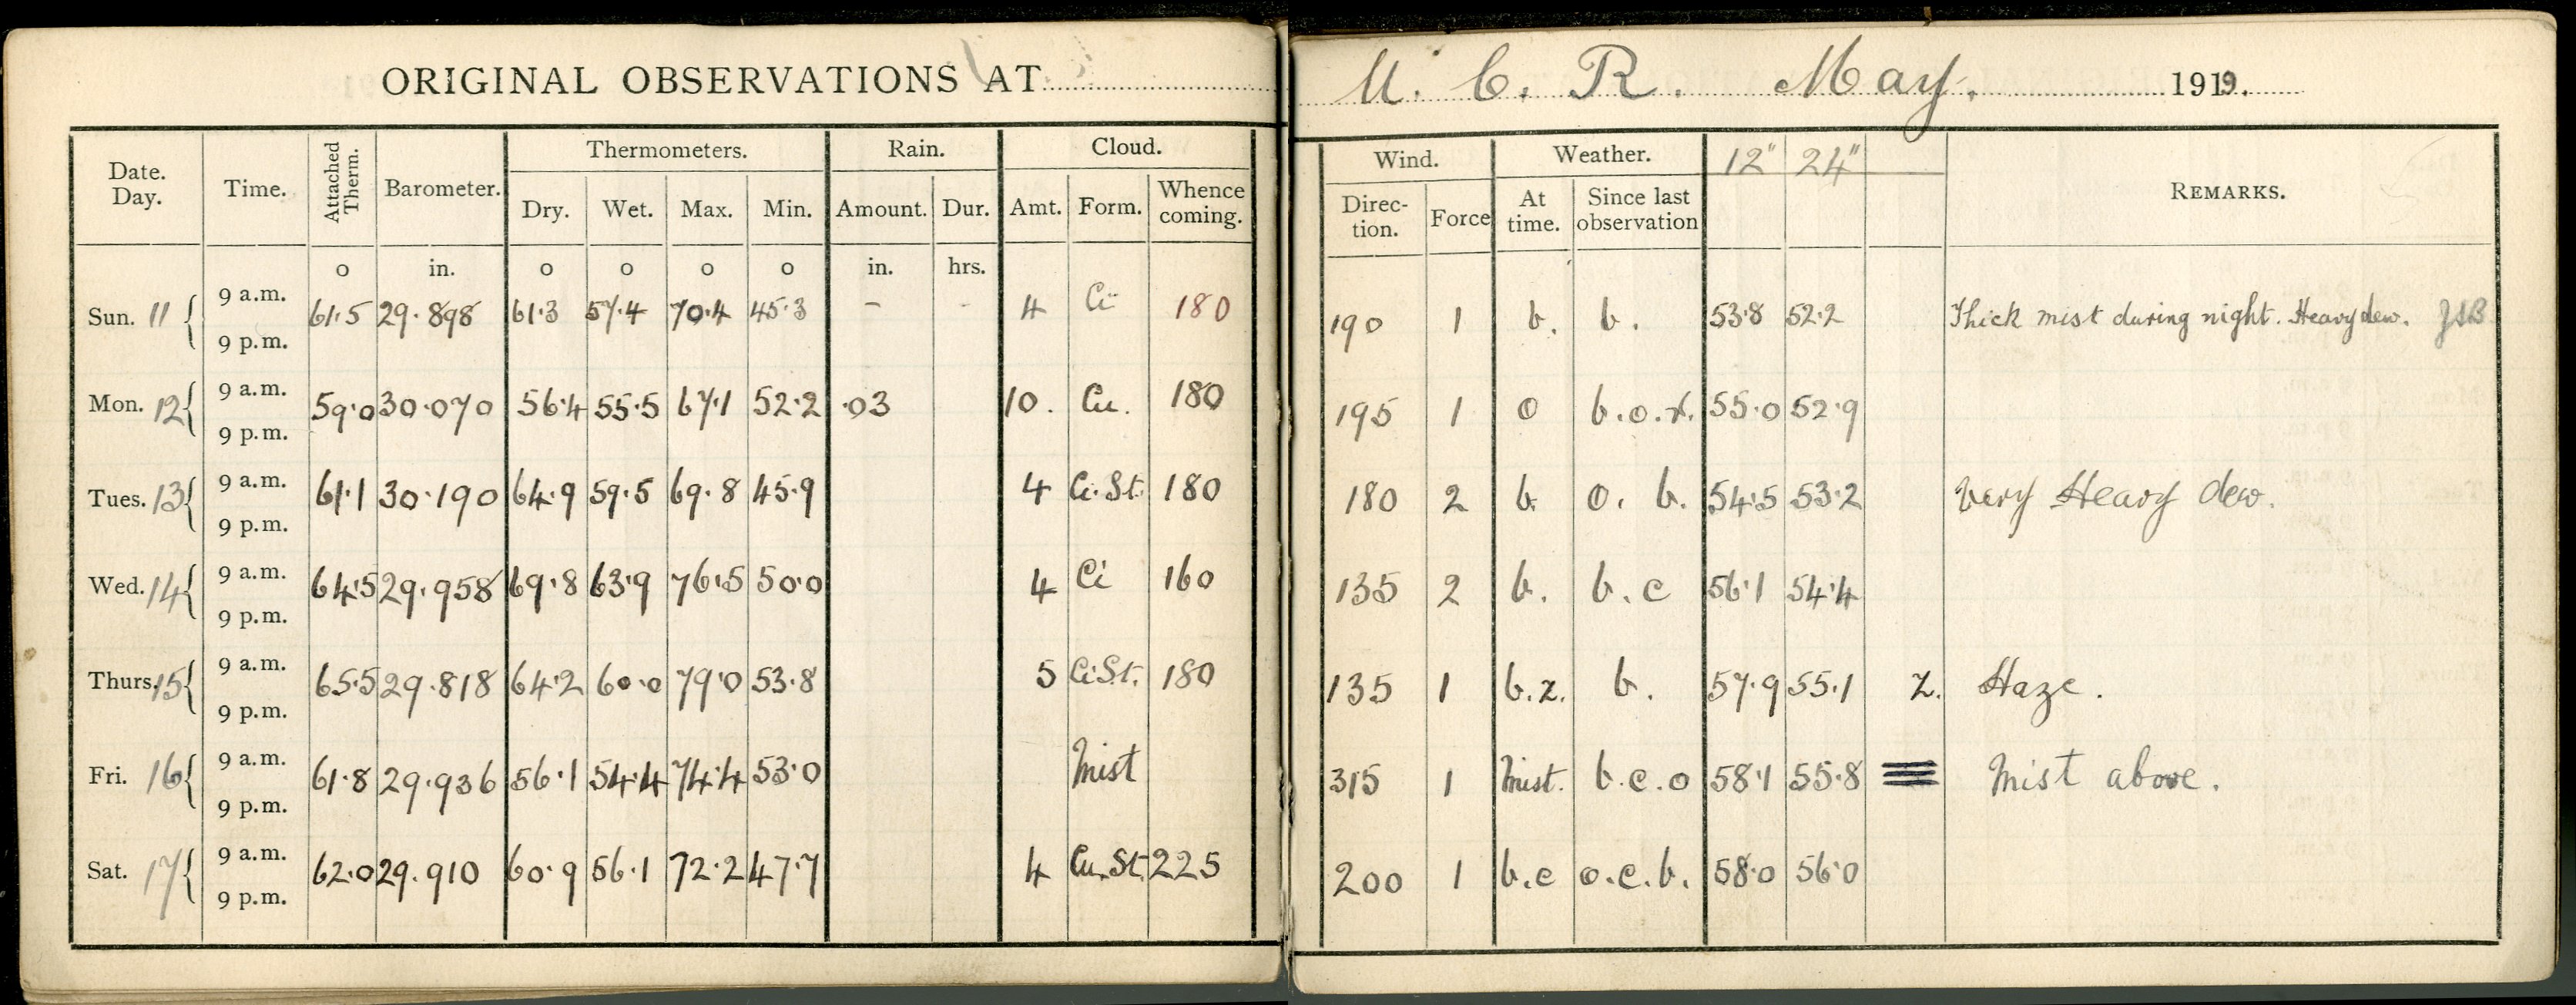 ORIGINAL OBSERVATIONS AT U. C. R. May. 1919.
Date. Day. Time. Attached Therm. Barometer. Thermometers. Rain. Cloud. Wind. Weather. 12" 24" REMARKS.
Dry. Wet. Max. Min. Amount. Dur. Amt. Form. Whence coming. Direc-tion. Force At time. Since last observation
o in. o o o o in. hrs.
Sun. 11 { 9 a.m. 61.5 29.898 61.3 57.4 70.4 45.3 - - 4 Ci 180 190 1 b. b. 53.8 52.2 Thick mist during night. Heavy dew. JSB
9 p.m.
Mon. 12 { 9 a.m. 59.0 30.070 56.4 55.5 67.1 52.2 .03 10. Cu. 180 195 1 o b.o.r. 55.0 52.9
9 p.m.
Tues. 13 { 9 a.m. 61.1 30.190 64.9 59.5 69.8 45.9 4 Ci.St. 180 180 2 b. o. b. 54.5 53.2 Very Heavy dew.
9 p.m.
Wed. 14 { 9 a.m. 64.5 29.958 69.8 63.9 76.5 50.0 4 Ci 160 135 2 b. b.c 56.1 54.4
9 p.m.
Thurs. 15 { 9 a.m. 65.5 29.818 64.2 60.0 79.0 53.8 5 Ci.St. 180 135 1 b.z. b. 57.9 55.1 Z. Haze.
9 p.m.
Fri. 16 { 9 a.m. 61.8 29.936 56.1 54.4 74.4 53.0 Mist 315 1 Mist. b.c.o 58.1 55.8 ≡ Mist above.
9 p.m.
Sat. 17 { 9 a.m. 62.0 29.910 60.9 56.1 72.2 47.7 4 Cu.St. 225 200 1 b.c o.c.b. 58.0 56.0
9 p.m.